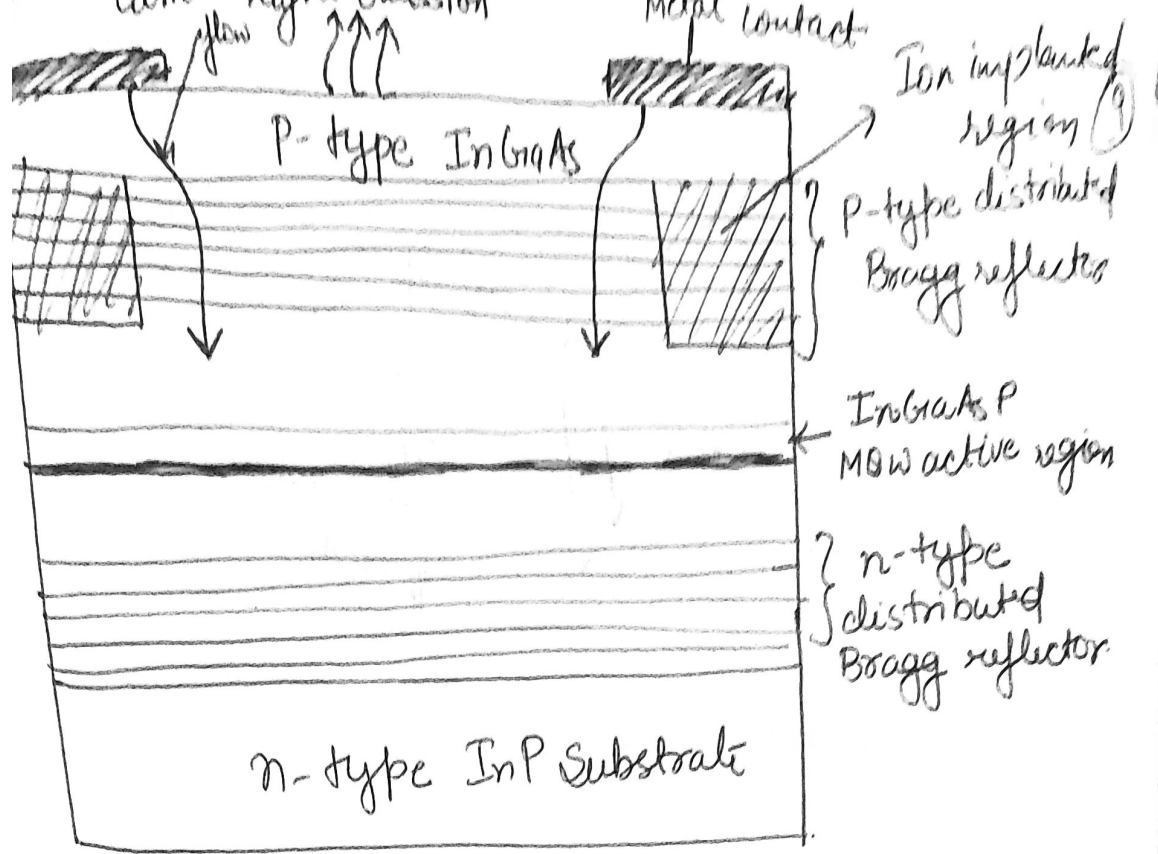 Light emission
flow
Metal contact
Ion implanted
region
P-type InGaAs
P-type distributed
Bragg reflector
InGaAsP
MQW active region
n-type
distributed
Bragg reflector
n-type InP Substrate